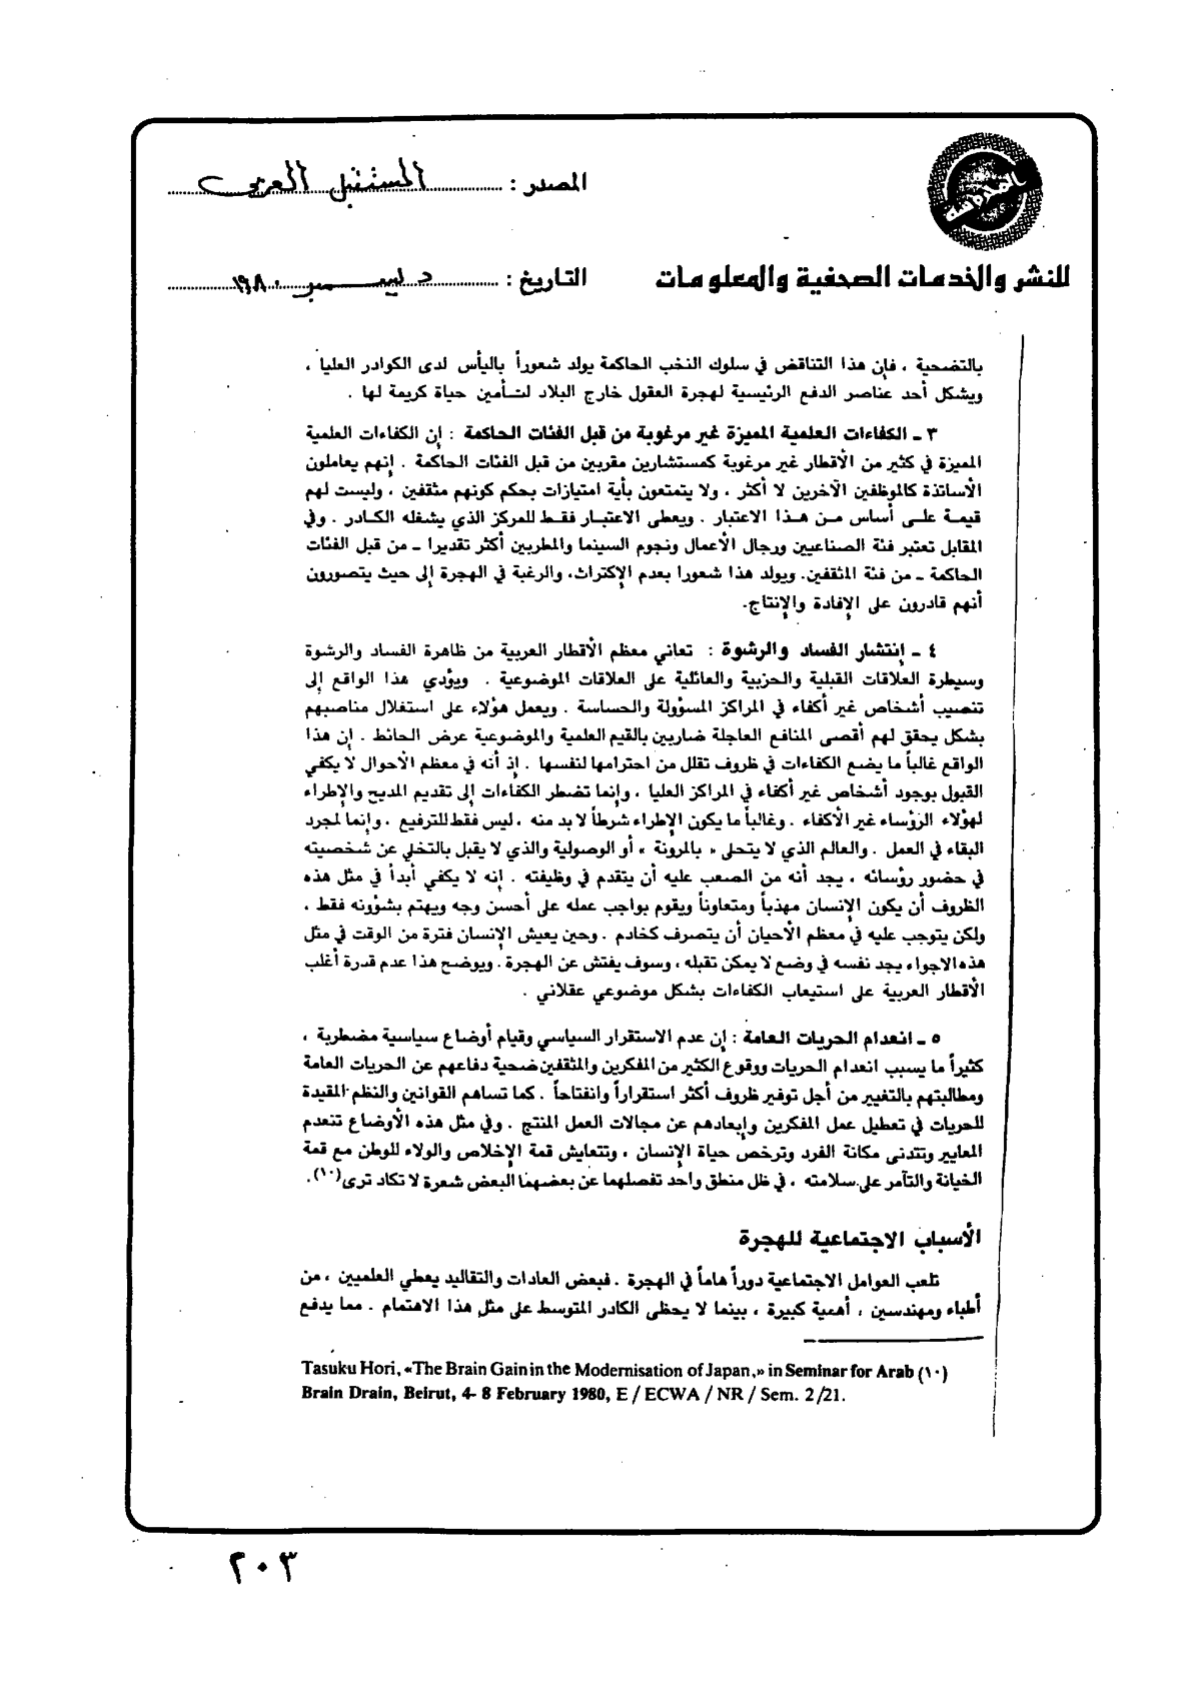 المحروسة
المصدر : المستقبل العربي
للنشر والخدمات الصحفية والمعلومات
التاريخ : ديسمبر ١٩٨٠
بالتضحية ، فإن هذا التناقض في سلوك النخب الحاكمة يولد شعوراً باليأس لدى الكوادر العليا ،
ويشكل أحد عناصر الدفع الرئيسية لهجرة العقول خارج البلاد لتأمين حياة كريمة لها .
٣ ـ الكفاءات العلمية المميزة غير مرغوبة من قبل الفئات الحاكمة : إن الكفاءات العلمية
المميزة في كثير من الأقطار غير مرغوبة كمستشارين مقربين من قبل الفئات الحاكمة . إنهم يعاملون
الأساتذة كالموظفين الآخرين لا أكثر ، ولا يتمتعون بأية امتيازات بحكم كونهم مثقفين ، وليست لهم
قيمة على أساس من هذا الاعتبار . ويعطى الاعتبار فقط للمركز الذي يشغله الكادر . وفي
المقابل تعتبر فئة الصناعيين ورجال الأعمال ونجوم السينما والمطربين أكثر تقديرا ـ من قبل الفئات
الحاكمة ـ من فئة المثقفين. ويولد هذا شعورا بعدم الإكتراث، والرغبة في الهجرة إلى حيث يتصورون
أنهم قادرون على الإفادة والإنتاج.
٤ ـ إنتشار الفساد والرشوة : تعاني معظم الأقطار العربية من ظاهرة الفساد والرشوة
وسيطرة العلاقات القبلية والحزبية والعائلية على العلاقات الموضوعية . ويؤدي هذا الواقع إلى
تنصيب أشخاص غير أكفاء في المراكز المسؤولة والحساسة . ويعمل هؤلاء على استغلال مناصبهم
بشكل يحقق لهم أقصى المنافع العاجلة ضاربين بالقيم العلمية والموضوعية عرض الحائط . إن هذا
الواقع غالباً ما يضع الكفاءات في ظروف تقلل من احترامها لنفسها . إذ أنه في معظم الأحوال لا يكفي
القبول بوجود أشخاص غير أكفاء في المراكز العليا ، وإنما تضطر الكفاءات إلى تقديم المديح والإطراء
لهؤلاء الرؤساء غير الأكفاء . وغالباً ما يكون الإطراء شرطاً لا بد منه ، ليس فقط للترفيع ، وإنما لمجرد
البقاء في العمل . والعالم الذي لا يتحلى « بالمرونة » أو الوصولية والذي لا يقبل بالتخلي عن شخصيته
في حضور رؤسائه ، يجد أنه من الصعب عليه أن يتقدم في وظيفته . إنه لا يكفي أبداً في مثل هذه
الظروف أن يكون الإنسان مهذباً ومتعاوناً ويقوم بواجب عمله على أحسن وجه ويهتم بشؤونه فقط ،
ولكن يتوجب عليه في معظم الأحيان أن يتصرف كخادم . وحين يعيش الإنسان فترة من الوقت في مثل
هذه الاجواء يجد نفسه في وضع لا يمكن تقبله ، وسوف يفتش عن الهجرة . ويوضح هذا عدم قدرة أغلب
الأقطار العربية على استيعاب الكفاءات بشكل موضوعي عقلاني .
٥ ـ انعدام الحريات العامة : إن عدم الاستقرار السياسي وقيام أوضاع سياسية مضطربة ،
كثيراً ما يسبب انعدام الحريات ووقوع الكثير من المفكرين والمثقفين ضحية دفاعهم عن الحريات العامة
ومطالبتهم بالتغيير من أجل توفير ظروف أكثر استقراراً وانفتاحاً . كما تساهم القوانين والنظم المقيدة
للحريات في تعطيل عمل المفكرين وإبعادهم عن مجالات العمل المنتج . وفي مثل هذه الأوضاع تنعدم
المعايير وتتدنى مكانة الفرد وترخص حياة الإنسان ، وتتعايش قمة الإخلاص والولاء للوطن مع قمة
الخيانة والتآمر على سلامته ، في ظل منطق واحد تفصلهما عن بعضهما البعض شعرة لا تكاد ترى(١٠).
الأسباب الاجتماعية للهجرة
تلعب العوامل الاجتماعية دوراً هاماً في الهجرة . فبعض العادات والتقاليد يعطي العلميين ، من
أطباء ومهندسين ، أهمية كبيرة ، بينما لا يحظى الكادر المتوسط على مثل هذا الاهتمام . مما يدفع
Tasuku Hori, «The Brain Gain in the Modernisation of Japan,» in Seminar for Arab (١٠)
Brain Drain, Beirut, 4- 8 February 1980, E / ECWA / NR / Sem. 2/21.
٢٠٣